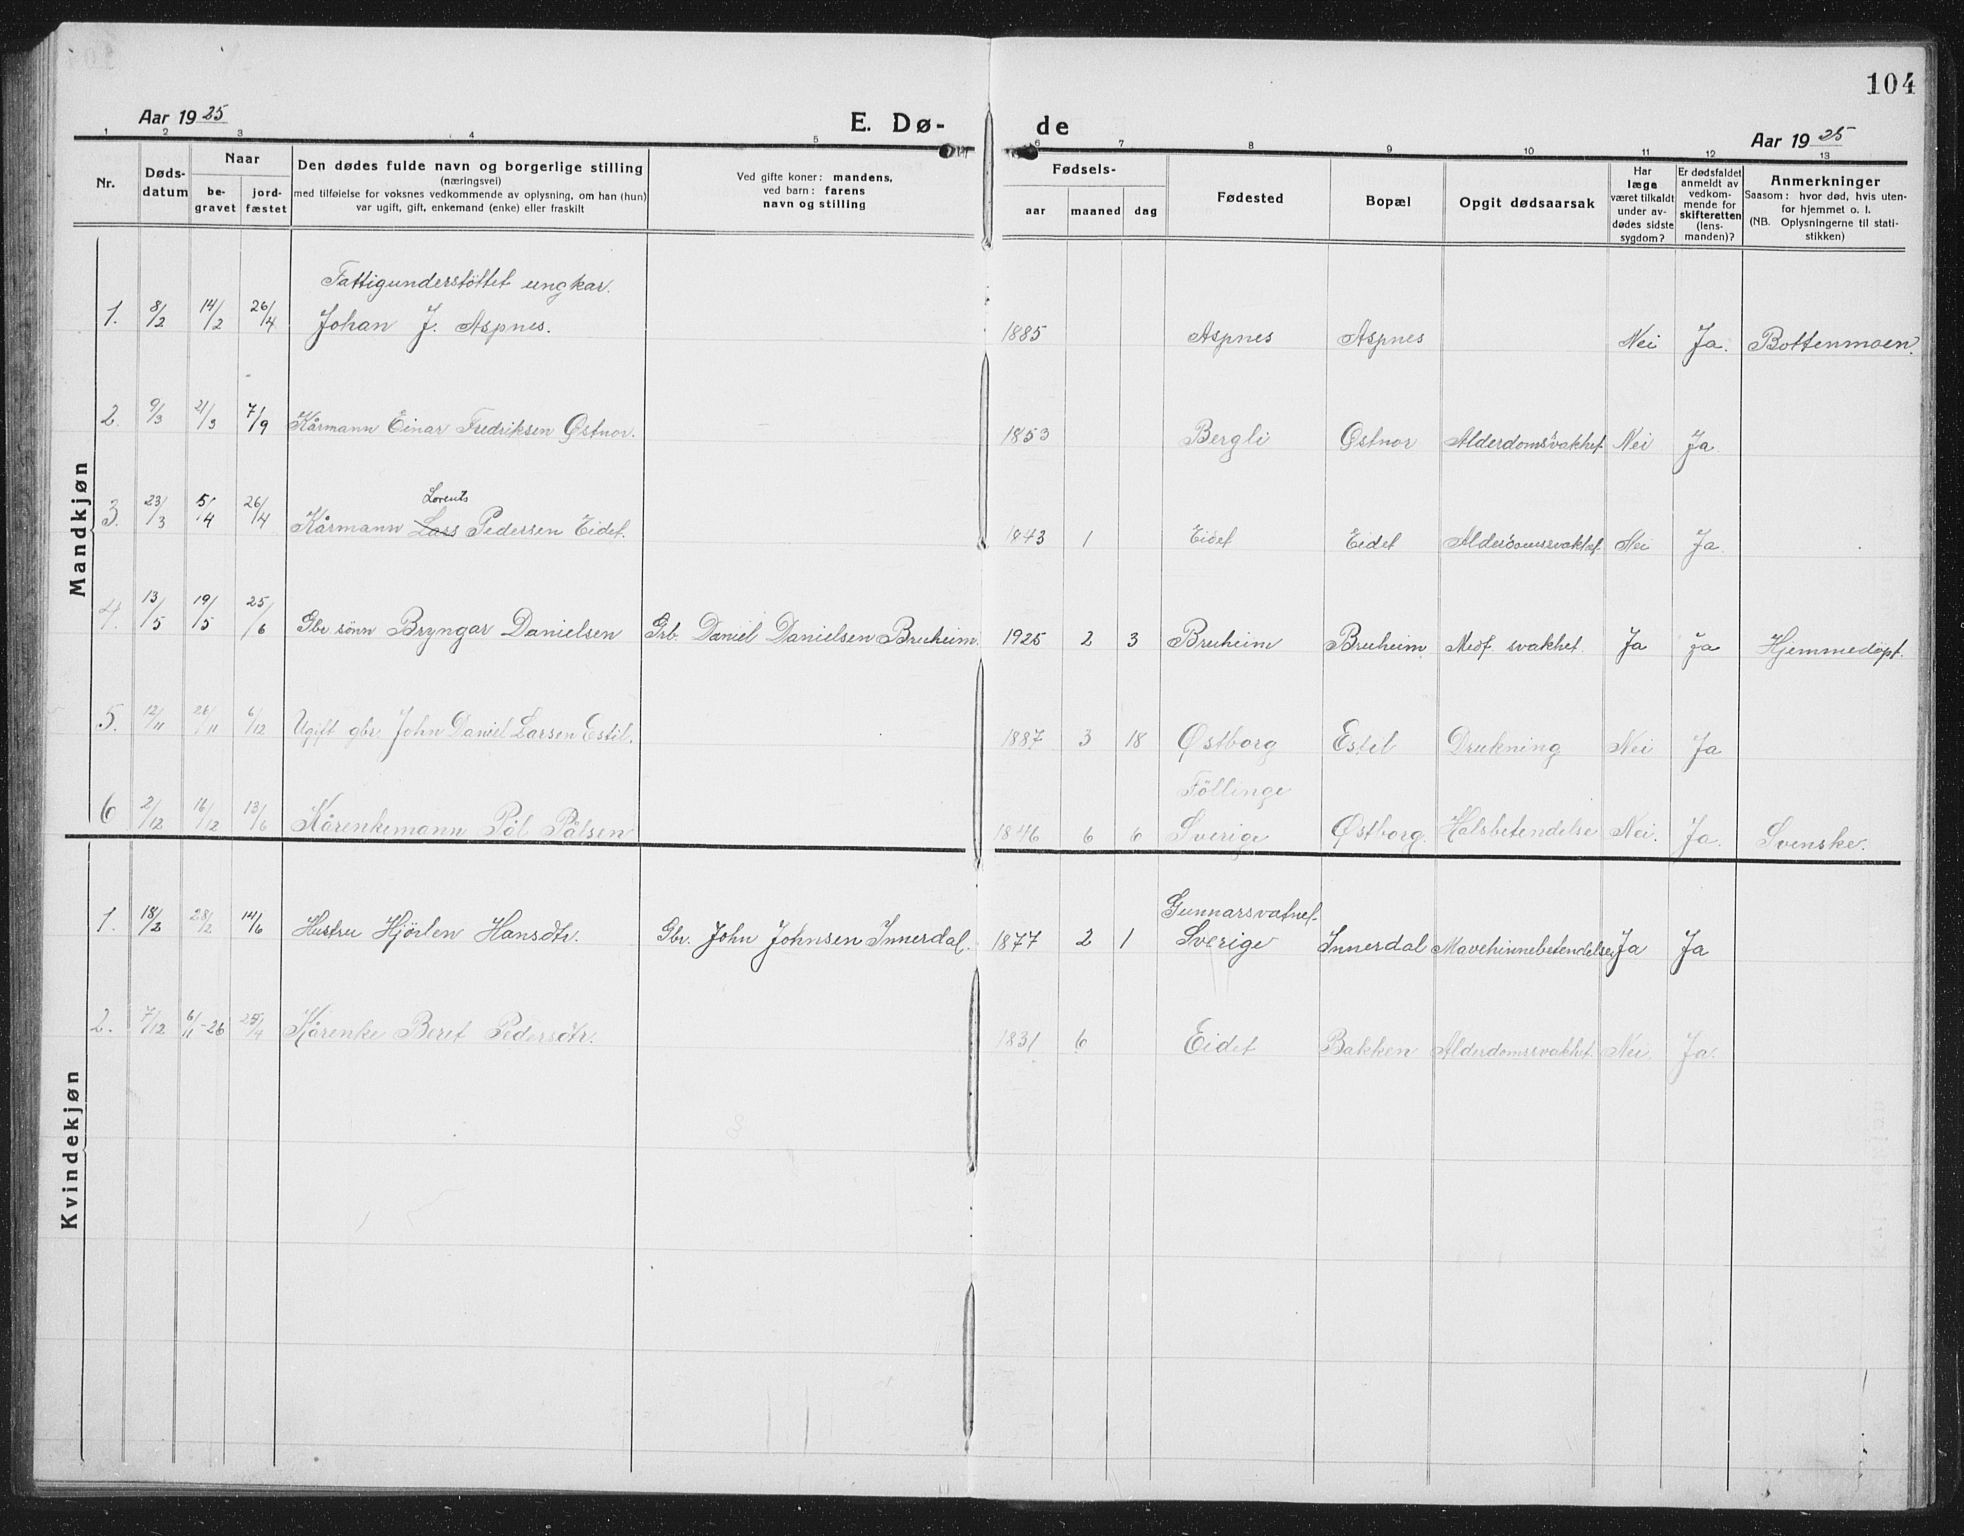 104
Aar 1925
E. Dø-
de
Aar 1925
1 2 3 4 5 6 7 8 9 10 11 12 13
Nr.
Døds-
datum
Naar
be-
gravet
jord-
fæstet
Den dødes fulde navn og borgerlige stilling
(næringsvei)
med tilføielse for voksnes vedkommende av oplysning, om han (hun)
var ugift, gift, enkemand (enke) eller fraskilt
Ved gifte koner: mandens,
ved barn: farens
navn og stilling
Fødsels-
aar maaned dag
Fødested
Bopæl
Opgit dødsaarsak
Har
læge
været tilkaldt
under av-
dødes sidste
sygdom?
Er dødsfaldet
anmeldt av
vedkom-
mende for
skifteretten
(lens-
manden)?
Anmerkninger
Saasom: hvor død, hvis uten-
for hjemmet o. l.
(NB. Oplysningerne til stati-
stikken)
Mandkjøn
Fattigunderstöttet ungkar.
1. 8/2 14/2 26/4 Johan J. Aspnes. 1885 Aspnes Aspnes Nei Ja. Bottenmoen.
2. 9/3 21/3 7/9 Kårmann Einar Fredriksen Østnor. 1853 Bergli Østnor Alderdomsvakhet Nei Ja
Lorents
3. 23/3 5/4 26/4 Kårmann Lars Pedersen Eidet. 1843 1 Eidet Eidet Alderdomssvakhet Nei Ja.
4. 13/5 19/5 25/6 Gbr sönn Bryngar Danielsen Grb. Daniel Danielsen Bruheim. 1925 2 3 Bruheim Bruheim Medf. svakhet. Ja Ja Hjemmedöpt.
5. 12/11 26/11 6/12 Ugift gbr. John Daniel Larsen Estil. 1887 3 18 Østborg Estil Drukning Nei Ja
Föllinge
6 2/12 16/12 13/6 Kårenkemann Pål Pålsen 1846 6 6 Sverige Østborg. Halsbetendelse Nei. Ja. Svenske.
Kvindekjøn
Gunnarsvatnet
1. 18/2 28/2 14/6 Hustru Hjörlen Hansdtr. Gbr. John Johnsen Innerdal. 1877 2 1 Sverige Innerdal Mavehinnebetendelse Ja Ja
2. 7/12 6/11-26 /4 Kårenke Beret Pedersdtr. 1831 6 Eidet Bakken Alderdomssvakhet. Nei. Ja.